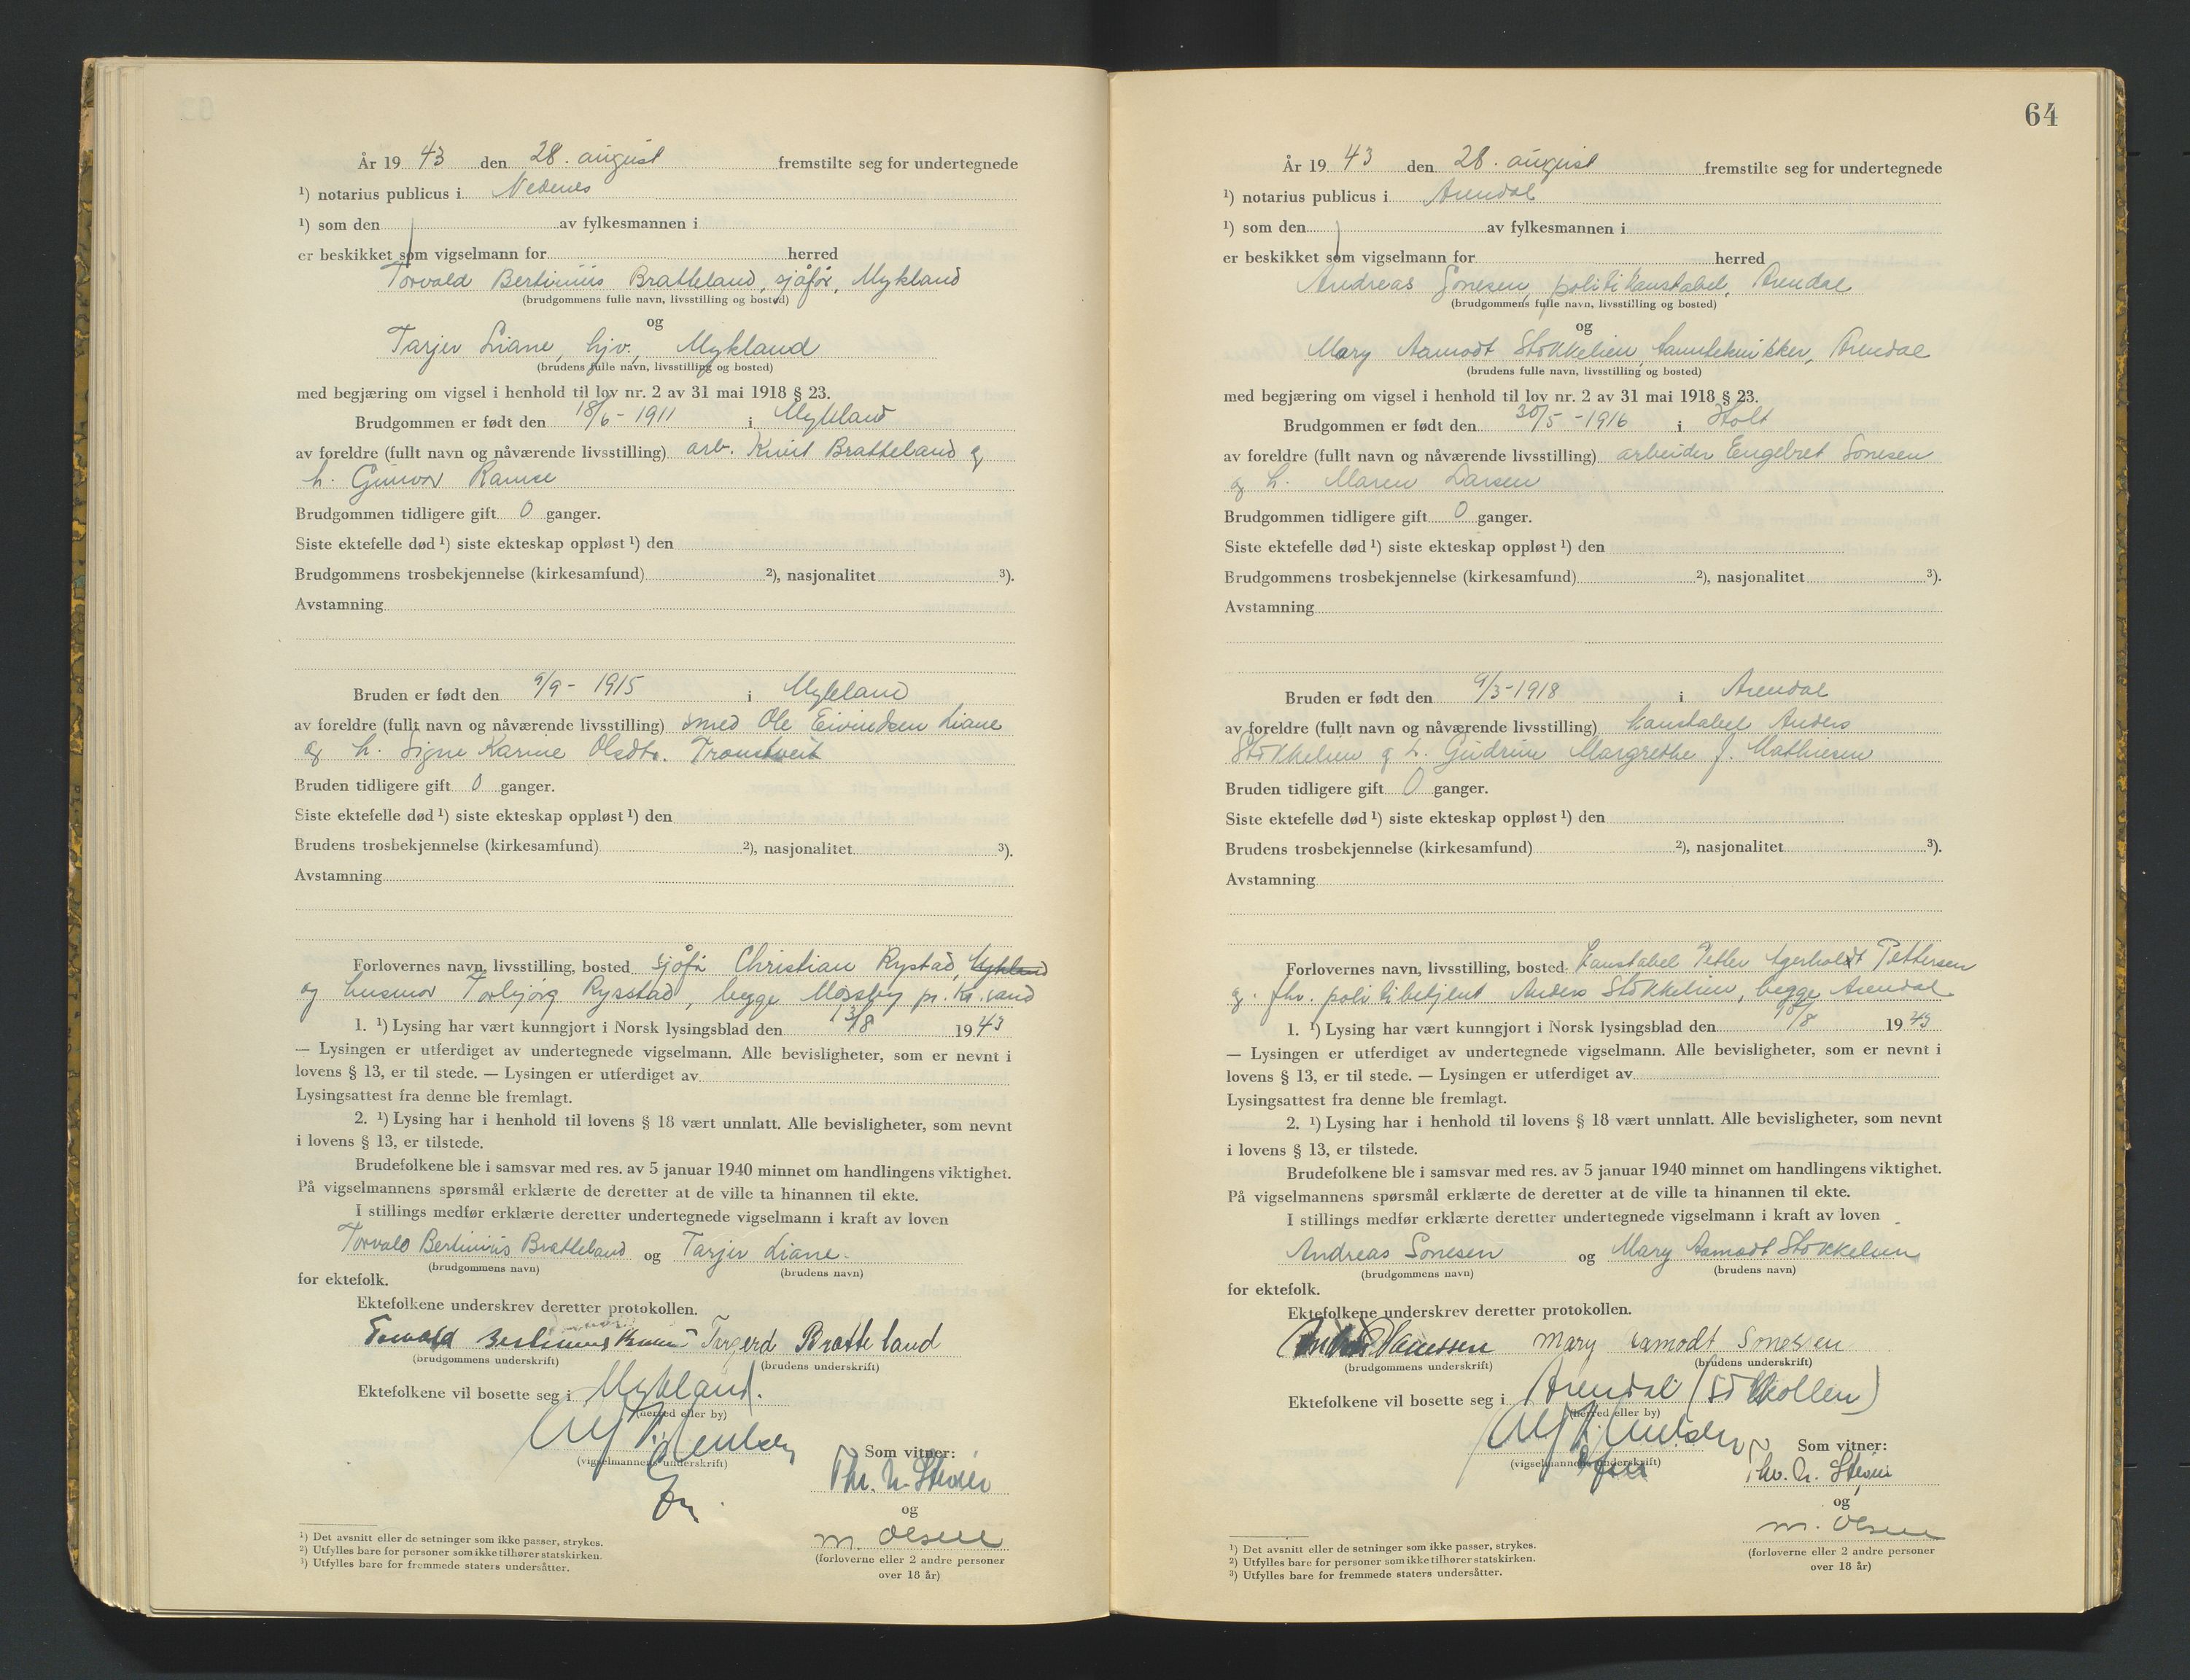 År 19 43 den 28. august fremstilte seg for undertegnede
¹) notarius publicus i Nedenes
¹) som den av fylkesmannen i
er beskikket som vigselmann for herred
Torvald Bertinius Bratteland, sjåfør, Mykland
(brudgommens fulle navn, livsstilling og bosted)
og
Tarjer Liane, hjv., Mykland
(brudens fulle navn, livsstilling og bosted)
med begjæring om vigsel i henhold til lov nr. 2 av 31 mai 1918 § 23.
Brudgommen er født den 18/6 - 1911 i Mykland
av foreldre (fullt navn og nåværende livsstilling) arb. Knut Bratteland og
h. Gunvor Ramse
Brudgommen tidligere gift 0 ganger.
Siste ektefelle død ¹) siste ekteskap oppløst ¹) den
Brudgommens trosbekjennelse (kirkesamfund) ²), nasjonalitet ³).
Avstamning
Bruden er født den 9/9 - 1915 i Mykland
av foreldre (fullt navn og nåværende livsstilling) smed Ole Eivindsen Liane
og h. Signe Karine Olsdtr. Tromtveit
Bruden tidligere gift 0 ganger.
Siste ektefelle død ¹) siste ekteskap oppløst ¹) den
Brudens trosbekjennelse (kirkesamfund) ²), nasjonalitet ³).
Avstamning
Forlovernes navn, livsstilling, bosted sjåfør Christian Rystad, Mykland
og husmor Torbjørg Rysstad, begge Mosby pr. Kr.sand
1. ¹) Lysing har vært kunngjort i Norsk lysingsblad den 13/8 1943
— Lysingen er utferdiget av undertegnede vigselmann. Alle bevisligheter, som er nevnt i
lovens § 13, er til stede. — Lysingen er utferdiget av
Lysingsattest fra denne ble fremlagt.
2. ¹) Lysing har i henhold til lovens § 18 vært unnlatt. Alle bevisligheter, som nevnt
i lovens § 13, er tilstede.
Brudefolkene ble i samsvar med res. av 5 januar 1940 minnet om handlingens viktighet.
På vigselmannens spørsmål erklærte de deretter at de ville ta hinannen til ekte.
I stillings medfør erklærte deretter undertegnede vigselmann i kraft av loven
Torvald Bertinius Bratteland og Tarjer Liane.
(brudgommens navn) (brudens navn)
for ektefolk.
Ektefolkene underskrev deretter protokollen.
Torvald Bertinius Targerd Bratteland
(brudgommens underskrift) (brudens underskrift)
Ektefolkene vil bosette seg i Mykland.
(herred eller by)
(vigselmannens underskrift)
Som vitner:
og
M. Olsen
(forloverne eller 2 andre personer
over 18 år)
¹) Det avsnitt eller de setninger som ikke passer, strykes.
²) Utfylles bare for personer som ikke tilhører statskirken.
³) Utfylles bare for fremmede staters undersåtter.
64
År 19 43 den 28. august fremstilte seg for undertegnede
¹) notarius publicus i Arendal
¹) som den av fylkesmannen i
er beskikket som vigselmann for herred
Andreas Sonesen, politikonstabel, Arendal
(brudgommens fulle navn, livsstilling og bosted)
og
Mary Aamodt Stokkelien, tannteknikker, Arendal
(brudens fulle navn, livsstilling og bosted)
med begjæring om vigsel i henhold til lov nr. 2 av 31 mai 1918 § 23.
Brudgommen er født den 30/5 - 1916 i Holt
av foreldre (fullt navn og nåværende livsstilling) arbeider Engebret Sonesen
og h. Maren Larsen
Brudgommen tidligere gift 0 ganger.
Siste ektefelle død ¹) siste ekteskap oppløst ¹) den
Brudgommens trosbekjennelse (kirkesamfund) ²), nasjonalitet ³).
Avstamning
Bruden er født den 9/3-1918 i Arendal
av foreldre (fullt navn og nåværende livsstilling) konstabel Anders
Stokkelien og h. Gudrun Margrethe J. Mathiesen
Bruden tidligere gift 0 ganger.
Siste ektefelle død ¹) siste ekteskap oppløst ¹) den
Brudens trosbekjennelse (kirkesamfund) ²), nasjonalitet ³).
Avstamning
Forlovernes navn, livsstilling, bosted konstabel Petter Agerholdt Pettersen
og fhv. politibetjent Anders Stokkelien, begge Arendal
1. ¹) Lysing har vært kunngjort i Norsk lysingsblad den 1943
— Lysingen er utferdiget av undertegnede vigselmann. Alle bevisligheter, som er nevnt i
lovens § 13, er til stede. — Lysingen er utferdiget av
Lysingsattest fra denne ble fremlagt.
2. ¹) Lysing har i henhold til lovens § 18 vært unnlatt. Alle bevisligheter, som nevnt
i lovens § 13, er tilstede.
Brudefolkene ble i samsvar med res. av 5 januar 1940 minnet om handlingens viktighet.
På vigselmannens spørsmål erklærte de deretter at de ville ta hinannen til ekte.
I stillings medfør erklærte deretter undertegnede vigselmann i kraft av loven
Andreas Sonesen og Mary Aamodt Stokkelien
(brudgommens navn) (brudens navn)
for ektefolk.
Ektefolkene underskrev deretter protokollen.
Mary Aamodt Sonesen
(brudgommens underskrift) (brudens underskrift)
Ektefolkene vil bosette seg i Arendal
(herred eller by)
(vigselmannens underskrift)
Som vitner:
og
M. Olsen
(forloverne eller 2 andre personer
over 18 år)
¹) Det avsnitt eller de setninger som ikke passer, strykes.
²) Utfylles bare for personer som ikke tilhører statskirken.
³) Utfylles bare for fremmede staters undersåtter.